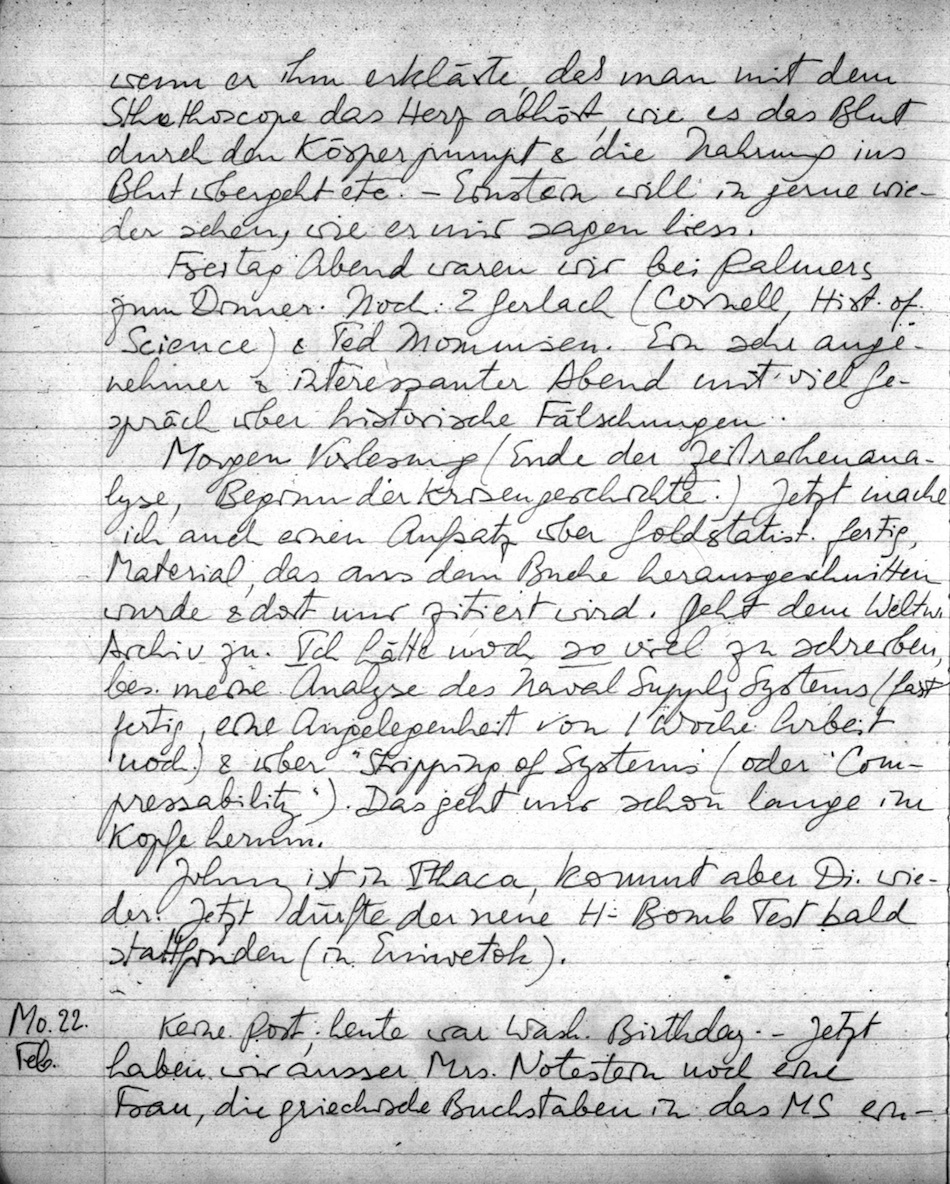 wenn er ihm erklärte, das man mit dem
Sthethoscope das Herz abhört, wie es das Blut
durch den Körper pumpt & die Nahrung ins
Blut übergeht etc. – Einstein will in gerne wie-
der sehen, wie er mir sagen liess.
Freitag Abend waren wir bei Palmers
zum Dinner. Noch: 2 Gerlach (Cornell, Hist. of
Science) & Ted Mommsen. Ein sehr ange-
nehmer & interessanter Abend mit viel Ge-
spräch über historische Fälschungen.
Morgen Vorlesung (Ende der Zeitreihenana-
lyse, Beginn der Krisengeschichte.) Jetzt mache
ich auch einen Aufsatz über Goldstatist. fertig,
Material, das aus dem Buche herausgeschnitten
wurde & dort nur zitiert wird. Geht dem Weltw.
Archiv zu. Ich hätte noch so viel zu schreiben,
bes. meine Analyse des Naval Supply Systems (fast
fertig, eine Angelegenheit von 1 Woche Arbeit
noch) & über "Stripping of Systems" (oder "Com-
pressability"). Das geht mir schon lange im
Kopfe herum.
Johnny ist in Ithaca, kommt aber Di. wie-
der. Jetzt dürfte der neue H-Bomb Test bald
stattfinden (in Eniwetok).
Mo. 22.
Feb.
Keine Post, heute war Wash. Birthday. – Jetzt
haben wir ausser Mrs. Notestein noch eine
Frau, die griechische Buchstaben in das MS ein-